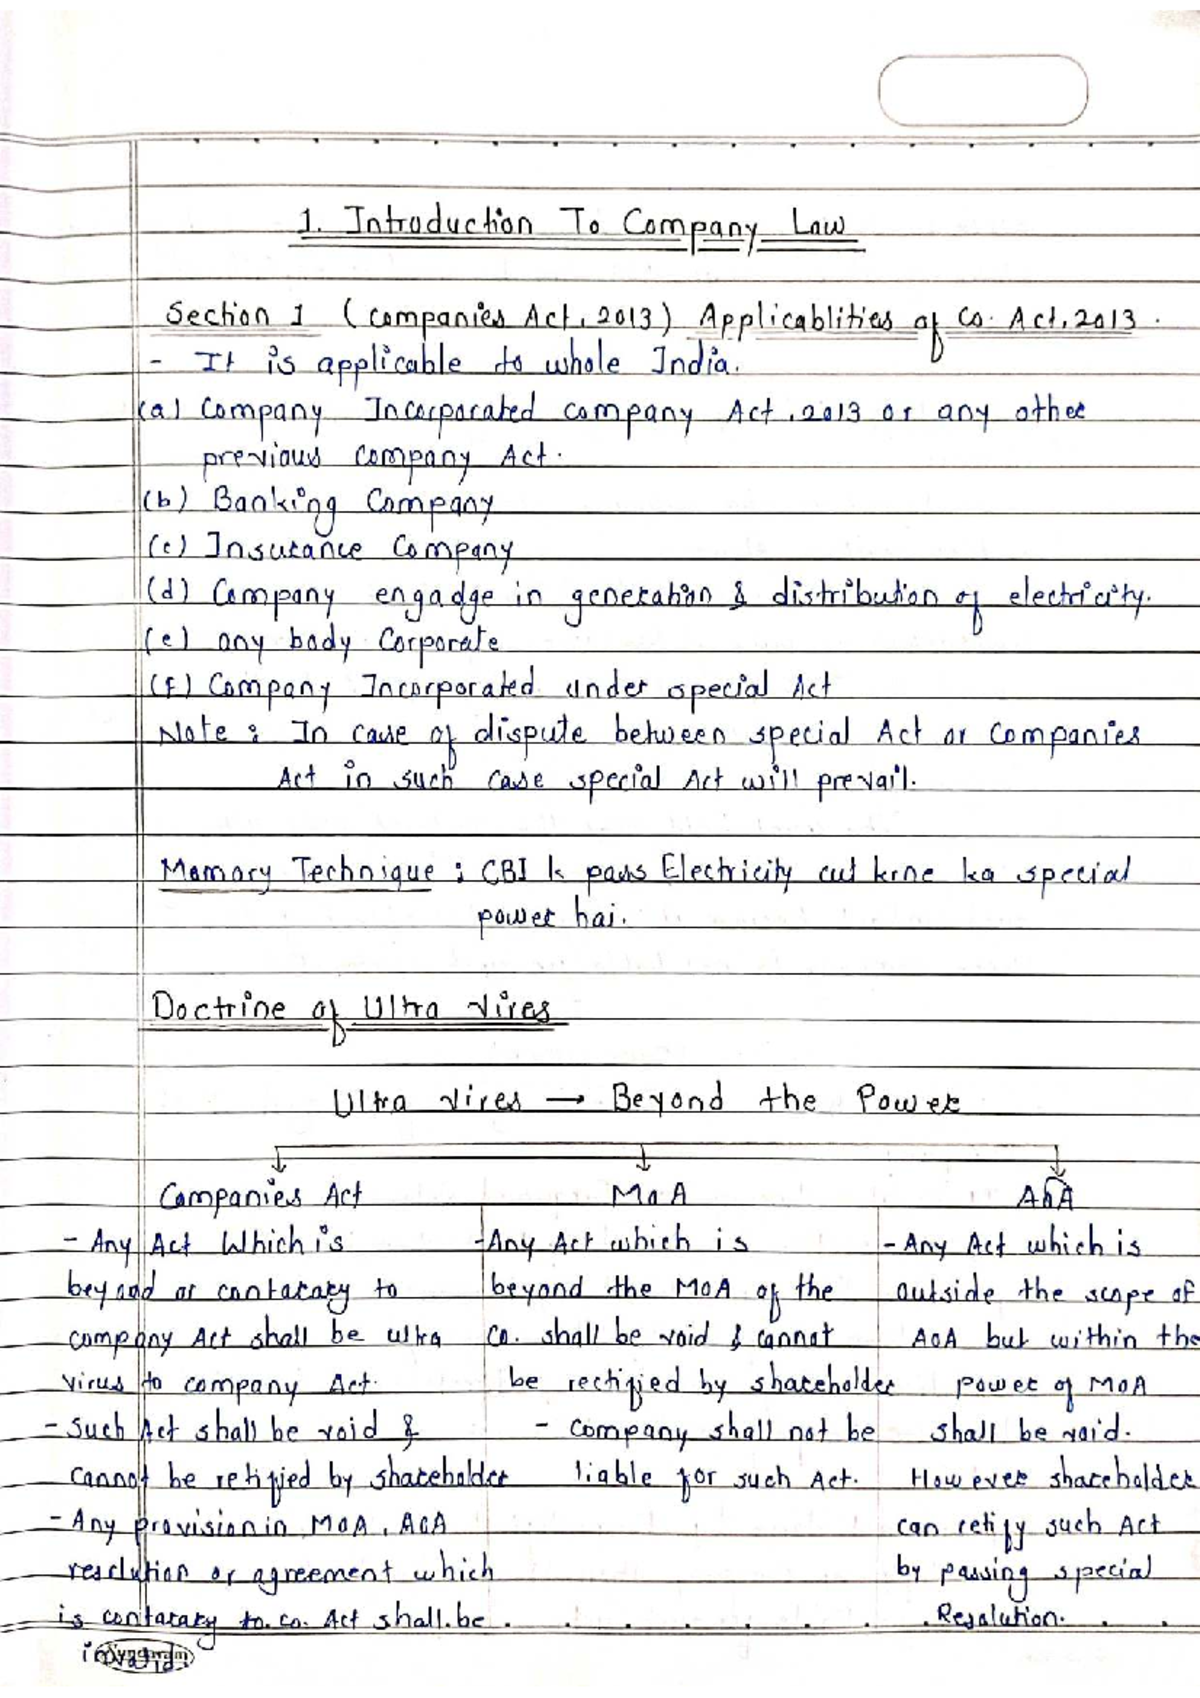 1. Introduction To Company Law
Section 1 (Companies Act, 2013) Applicablities of Co. Act, 2013.
- It is applicable to whole India.
(a) Company Incorporated company Act, 2013 or any other
previous company Act.
(b) Banking Company
(c) Insurance Company
(d) Company engadge in generation & distribution of electricity.
(e) any body Corporate
(f) Company Incorporated under special Act
Note : In case of dispute between special Act or Companies
Act in such case special Act will prevail.
Memory Technique : CBI k pass Electricity cut krne ka special
power hai.
Doctrine of Ultra Vires
Ultra Vires → Beyond the Power
Companies Act
- Any Act Which is
beyond or contarary to
company Act shall be ultra
virus to company Act.
- Such Act shall be void &
cannot be retified by shareholder
- Any provision in MOA, AOA
resolution or agreement which
is contarary to co. Act shall be
invalid.
MOA
- Any Act which is
beyond the MOA of the
Co. shall be void & cannot
be rectified by shareholder
- Company shall not be
liable for such Act.
AOA
- Any Act which is
outside the scope of
AOA but within the
power of MOA
shall be void.
However shareholder
can retify such Act
by passing special
Resolution.